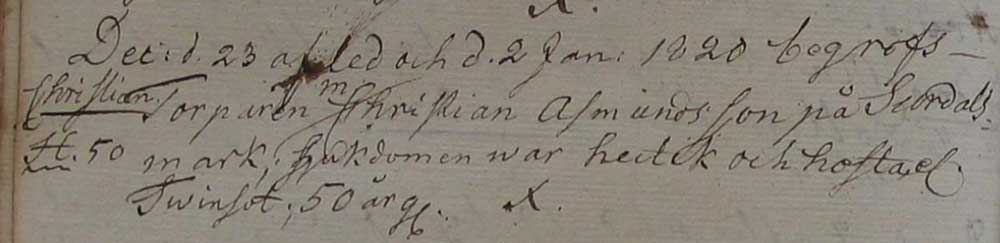 Dec: d. 23 afled och d. 2 Jan: 1820 begrofs
Christian. Torparen Christian Asmundsson på
Æt. 50 mark, Siukdomen war hectik och hosta, el.
Twinsot, 50 år gl.